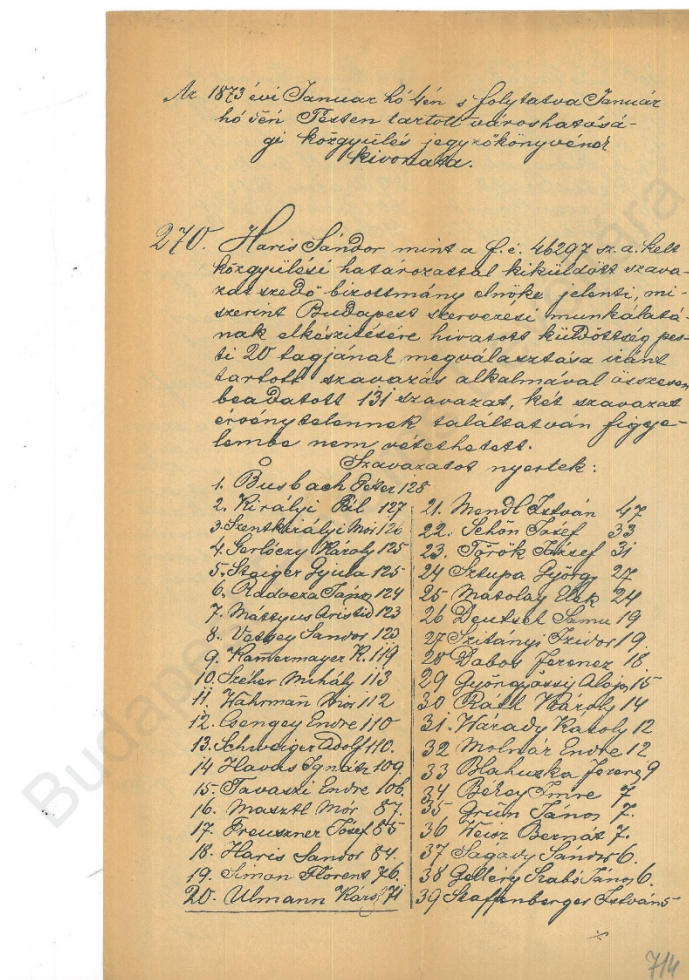 Az 1873 évi Januar hó 4én s folytatva Január
hó 5én Pesten tartott városhatósá-
gi közgyülés jegyzőkönyvének
kivonata.
270. Haris Sándor mint a f. é. 46297 sz. a. kelt
közgyülési határozattal kiküldött szava-
zat szedő bizottmány elnöke jelenti, mi-
szerint Budapest szervezési munkálatá-
nak elkészitésére hivatott küldöttség pes-
ti 20 tagjának megválasztása iránt
tartott szavazás alkalmával összesen
beadatott 131 szavazat, két szavazat
érvénytelennek találtatván figye-
lembe nem vétethetett.
Szavazatot nyertek:
1. Busbach Péter 128
2. Királyi Pál 127
3. Szentkirályi Mór 126
4. Gerlóczy Károly 125
5. Steiger Gyula 125
6. Radocza János 124
7. Mátyus Aristid 123
8. Vecsey Sandor 120
9. Kamermayer K. 119
10. Széher Mihály 113
11. Wahrmann Mór 112
12. Csengey Endre 110
13. Schweiger Adolf 110.
14 Havas Ignátz 109.
15. Tavaszi Endre 106.
16. Masztl Mór 87.
17. Preuszner József 85
18. Haris Sandor 84.
19. Simon Florent 76.
20. Ulmann Károl 71
21. Mendl István 47
22. Schön Josef 33
23. Török József 31
24 Sztupa György 27
25 Matolay Elek 24
26 Deutsch Samu 19
27 Szitányi Izidor 19
28 Dabos Ferencz 18
29 Gyöngyössy Alajos 15
30 Ráth Károly 14
31. Várady Karoly 12
32 Molnar Endre 12
33 Blahuzka Ferenc 9
34 Bérey Imre 7
35 Grüm János 7.
36 Weisz Bernát 7.
37 Ságody Sándor 6.
38 Gelléry Szabó János 6.
39 Staffenberger István 5
714
Budape
ára